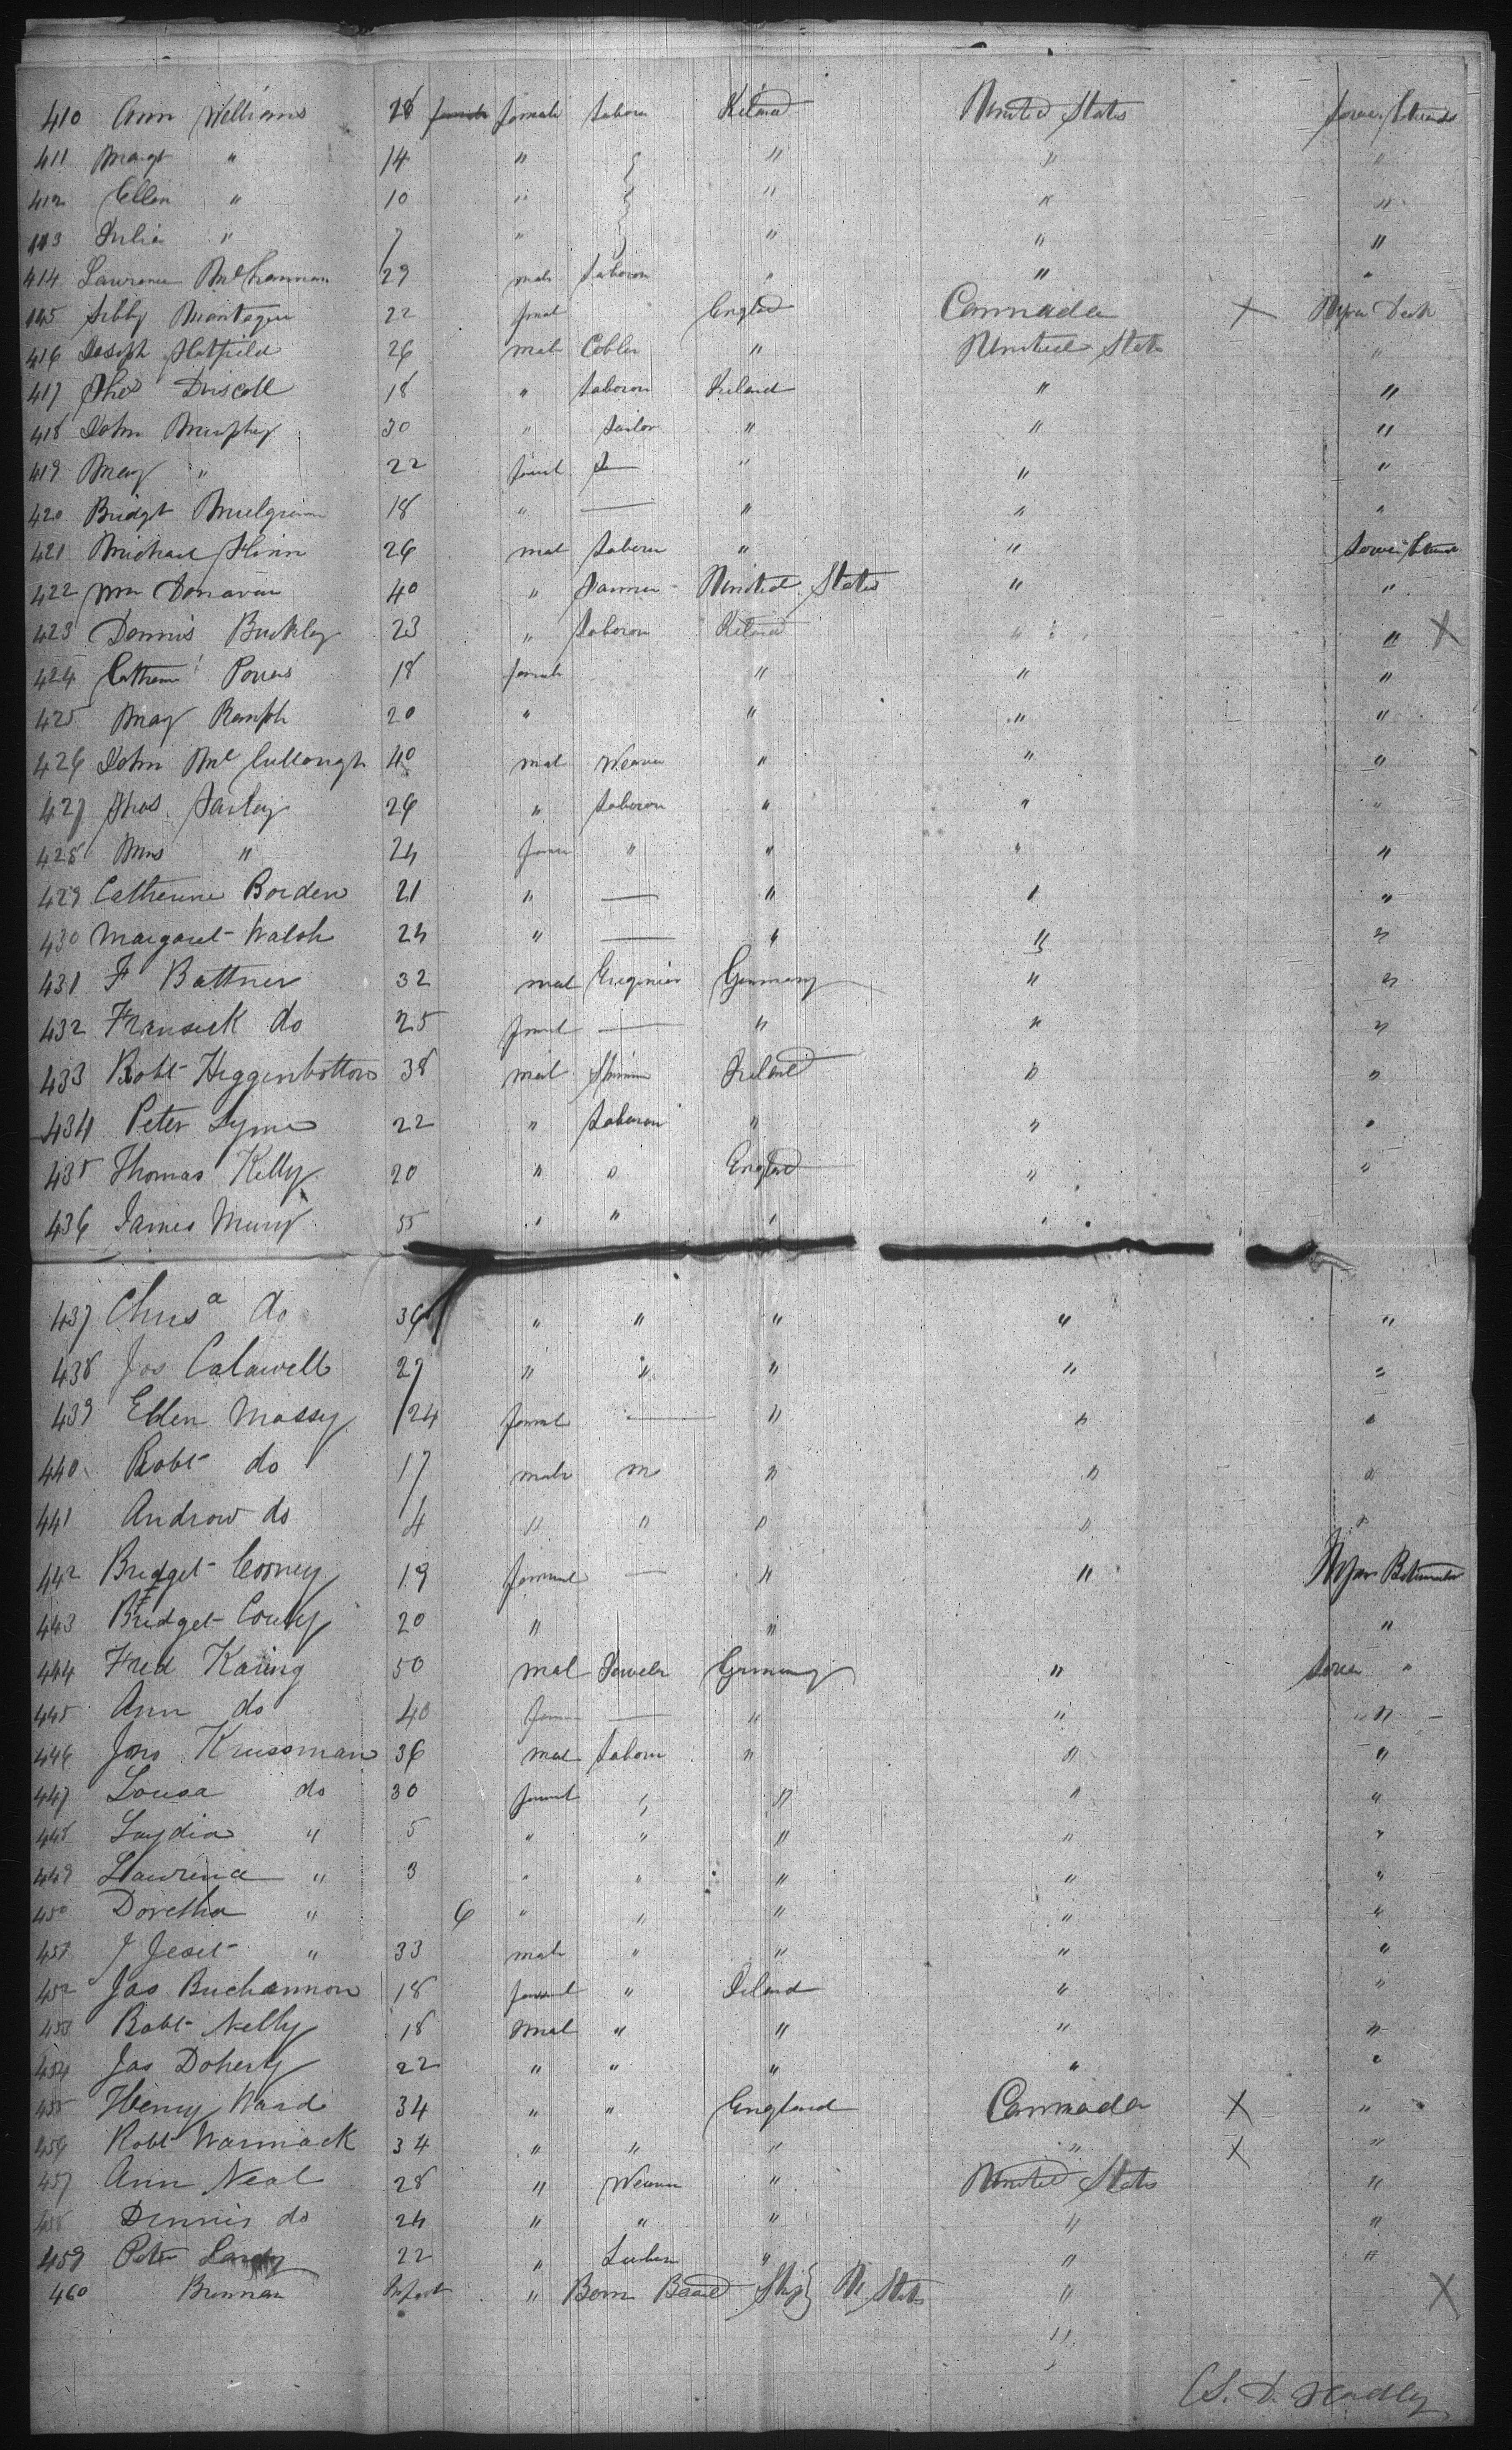 410 Ann Williams 28 female Labour Ireland United States Lower Between
411 Margt " 14 " " " "
412 Ellen " 10 " " " "
413 Julia " 7 " " " "
414 Lawrence 29 male Laborour " " "
415 Libby Montague 22 femal England Cannada X Upper Deck
416 Joseph Hatfield 26 mal Cobler " United States "
417 Thos Driscoll 18 " Laborour Ireland " "
418 John Murphy 30 " Tailor " " "
419 Mary " 22 femal " " "
420 Bridgt 18 " — " " "
421 Michael Flinn 26 mal Laborer " " Lower Between
422 Wm Donavan 40 " Farmer United States " "
423 Dennis Buckley 23 " Laborour Ireland " " X
424 Cathrine Powers 18 female " " "
425 Mary 20 " " " "
426 John McCullough 40 mal Weaver " " "
427 Thos. Farley 26 " Laborour " " "
428 Mrs " 24 " " " "
429 Catherine Borden 21 " — " " "
430 Margaret Walsh 24 " — " " "
431 F Battner 32 mal Enginier Germany " "
432 do 25 femal — " " "
433 Robt Higgenbottom 38 mal Ireland " "
434 Peter Lyme 22 " Laborour " " "
435 Thomas Kelly 20 " " England " "
436 James Murry 55 " " " "
437 do 36 " " " " "
438 Jos Calawell 27 " " " " "
439 Ellen Massy 24 femal — " " "
440 Robt do 17 male " " "
441 Andrew do 4 " " " " "
442 Bridget Cooney 19 femal — " " Upper Between
443 Bridget 20 " " "
444 Fred Karing 50 mal Jeweler Germany " Lower "
445 Ann do 40 — " " "
446 Krussman 36 mal Labour " " "
447 Lousa do 30 femal " " " "
448 Laydia " 5 " " " " "
449 Lawrence " 3 " " " " "
450 Doretha " 6 " " " " "
451 " 33 male " " " "
452 Jas Buchannon 18 " Ireland " "
453 Robt Kelly 18 mal " " " "
454 Jas Doherty 22 " " " " "
455 Henry Ward 34 " " England Cannada X "
456 Robt Warmack 34 " " " " X "
457 Ann Neal 28 " Weaver " United States "
458 Dennis do 24 " " " " "
459 Peter 22 " " " "
460 Brennan Infant " Born Board Ship U States " X
"